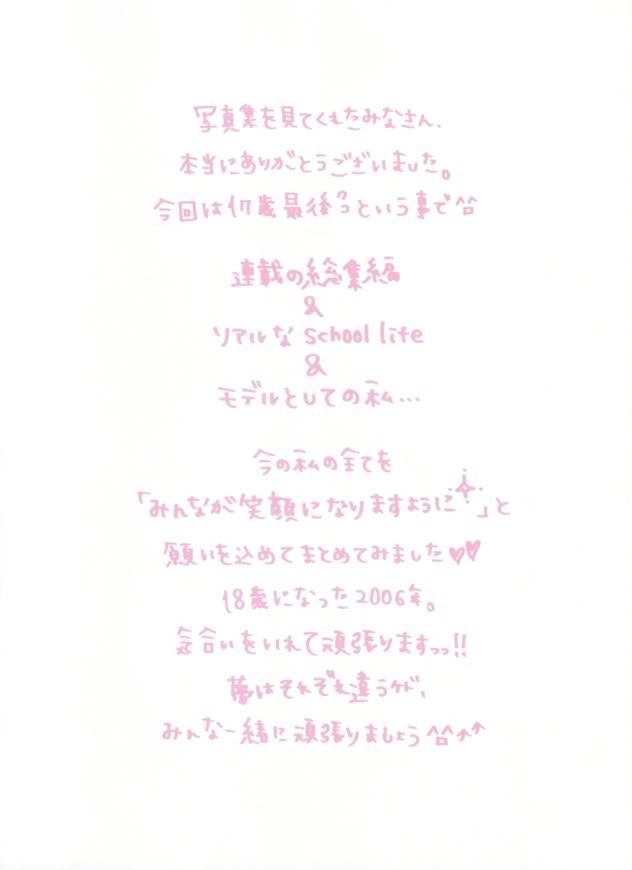 写真集を見てくれたみなさん、
本当にありがとうございました。
今回は17歳最後っつという事で^^
連載の総集編
&
リアルな school life
&
モデルとしての私…
今の私の全てを
「みんなが笑顔になりますように」と
願いを込めてまとめてみました♥♥
18歳になった2006年。
気合いをいれて頑張りますっっ!!
夢はそれぞれ違うケド、
みんな一緒に頑張りましょう^^↗↗